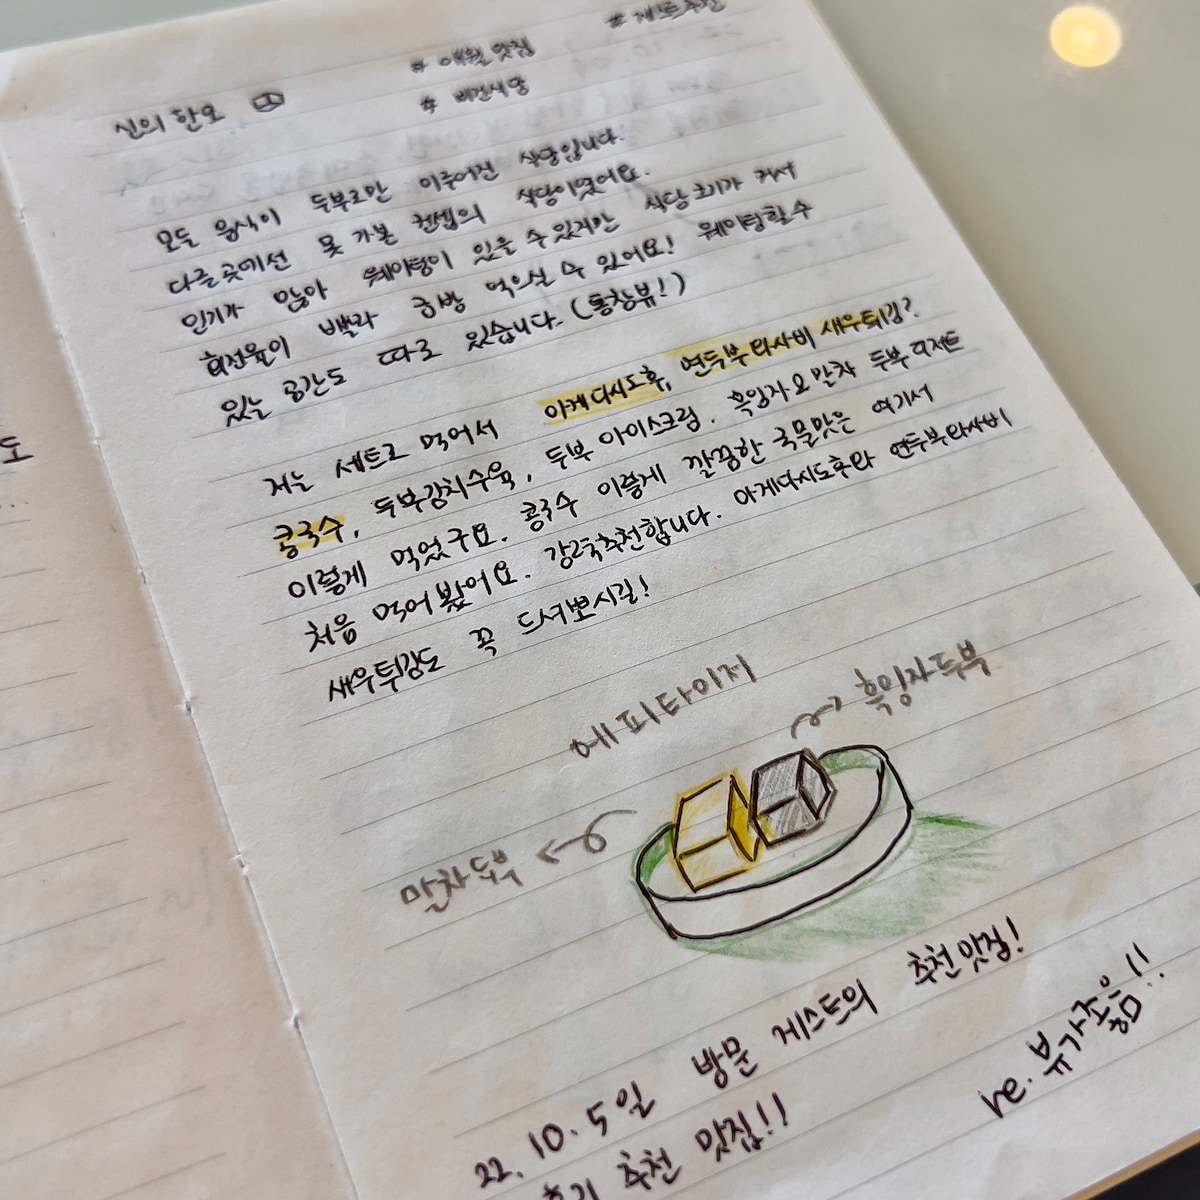 # 게스트추천
# 애월 맛집
신의 한모
# 비건식당
모든 음식이 두부로만 이루어진 식당입니다.
다른곳에선 못 가본 컨셉의 식당이였어요.
인기가 많아 웨이팅이 있을 수 있지만 식당 크기가 커서
회전율이 빨라 금방 먹으실 수 있어요! 웨이팅할 수
있는 공간도 따로 있습니다. (통창뷰!)
저는 세트로 먹어서 아게다시도후, 연두부와사비 새우튀김?
콩국수, 두부김치수육, 두부 아이스크림, 흑임자요 말차 두부 디저트
이렇게 먹었구요. 콩국수 이렇게 깔끔한 국물맛은 여기서
처음 먹어봤어요. 강력추천합니다. 아게다시도후와 연두부와사비
새우튀김도 꼭 드셔뽀시길!
에피타이저
흑임자두부
말차두부
22. 10. 5일 방문 게스트의 추천맛집!
추천 맛집!!
re. 뷰가좋음!!
도